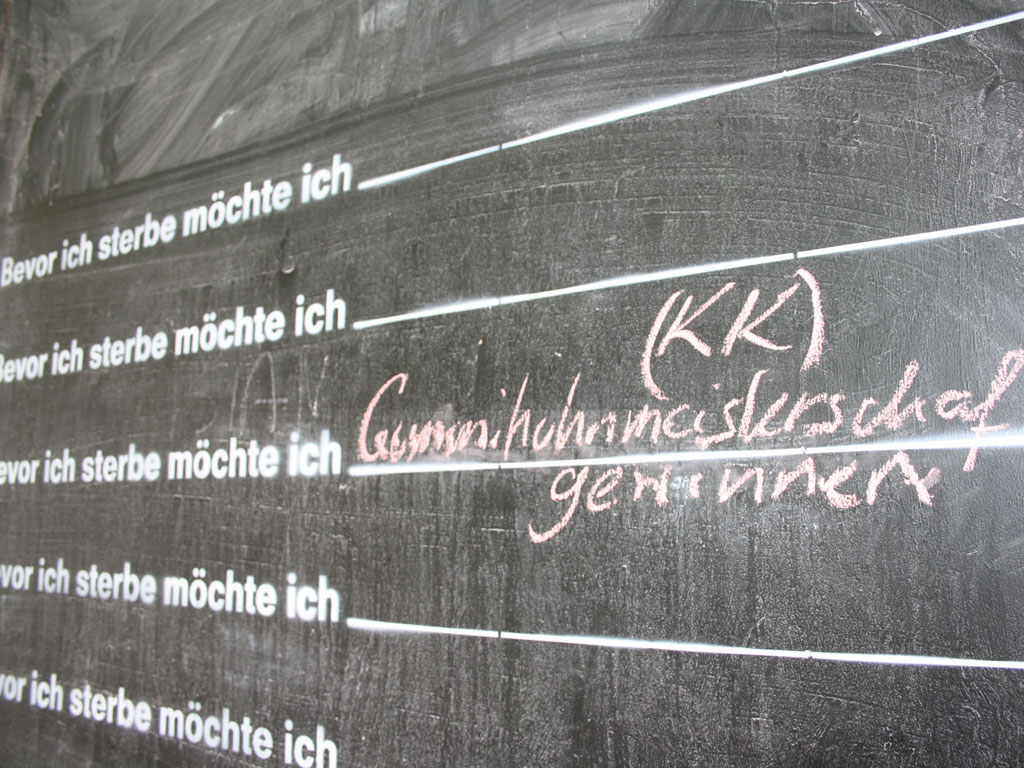 Bevor ich sterbe möchte ich
Bevor ich sterbe möchte ich
(KK)
evor ich sterbe möchte ich Gummihuhnmeisterschaf
gewinnen
vor ich sterbe möchte ich
vor ich sterbe möchte ich